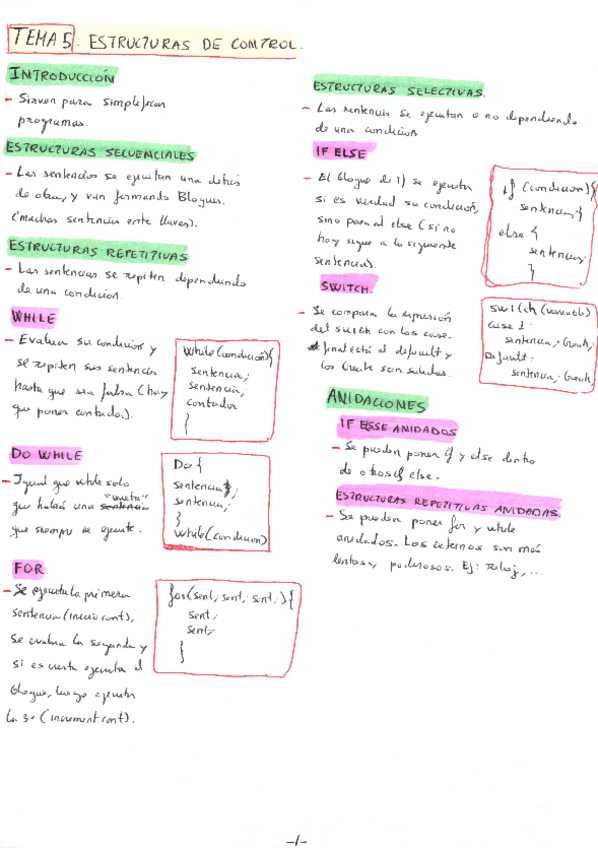 TEMA 5: ESTRUCTURAS DE CONTROL.
INTRODUCCIÓN
- Sirven para simplificar
programas.
ESTRUCTURAS SECUENCIALES
- Las sentencias se ejecutan una detrás
de otra, y van formando Bloques.
(muchas sentencias entre llaves).
ESTRUCTURAS REPETITIVAS
- Las sentencias se repiten dependiendo
de una condición.
WHILE
- Evalua su condición y
se repiten sus sentencias
hasta que sea falsa (hay
que poner contador).
while(condición){
sentencia;
sentencia;
contador
}
DO WHILE
- Igual que while solo
que habrá una "vuelta"
que siempre se ejecute.
Do {
sentencia;
sentencia;
}
while(condicion)
FOR
- Se ejecuta la primera
sentencia (inicio cont),
se evalua la segunda y
si es cierta ejecuta el
bloque, luego ejecuta
la 3ª (increment cont).
for(sent; sent; sent;){
sent;
sent;
}
ESTRUCTURAS SELECTIVAS.
- Las sentencias se ejecutan o no dependiendo
de una condición
IF ELSE
- El bloque de if se ejecuta
si es verdad su condición,
sino pasa al else (si no
hay sigue a la siguiente
sentencia).
if (condicion){
sentencia;}
else {
sentencia;
}
SWITCH.
- Se compara la expresión
del switch con los case.
Al final está el default y
los break son salidas.
switch (variable)
case 1:
sentencia; break;
Default:
sentencia; break;
ANIDACIONES
IF ESSE ANIDADOS
- Se pueden poner if y else dentro
de otros if else.
ESTRUCTURAS REPETITIVAS ANIDADAS.
- Se pueden poner for y while
anidados. Los externos son más
lentos y poderosos. Ej: reloj, ...
-1-